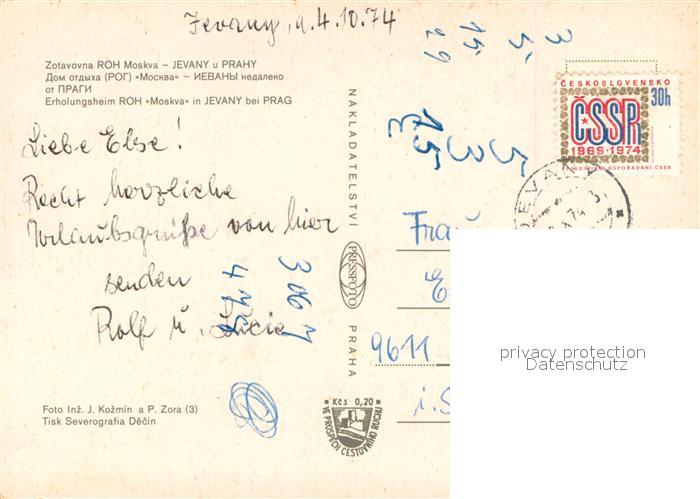 Jevany, d. 4.10.74
Zotavovna ROH Moskva – JEVANY u PRAHY
Дом отдыха (РОГ) «Москва» – ИЕВАНЫ недалеко
от ПРАГИ
Erholungsheim ROH «Moskva» in JEVANY bei PRAG
Liebe Else!
Recht herzliche
Urlaubsgrüße von hier
senden
Rolf u. Lucie
Foto Inž. J. Kožmín a P. Zora (3)
Tisk Severografia Děčín
NAKLADATELSTVÍ
PRESSFOTO
PRAHA
Kčs 0,20
VE PROSPĚCH CESTOVNÍHO RUCHU
ČESKOSLOVENSKO
30h
ČSSR
1969·1974
JEVANY
Frau
9611
privacy protection
Datenschutz